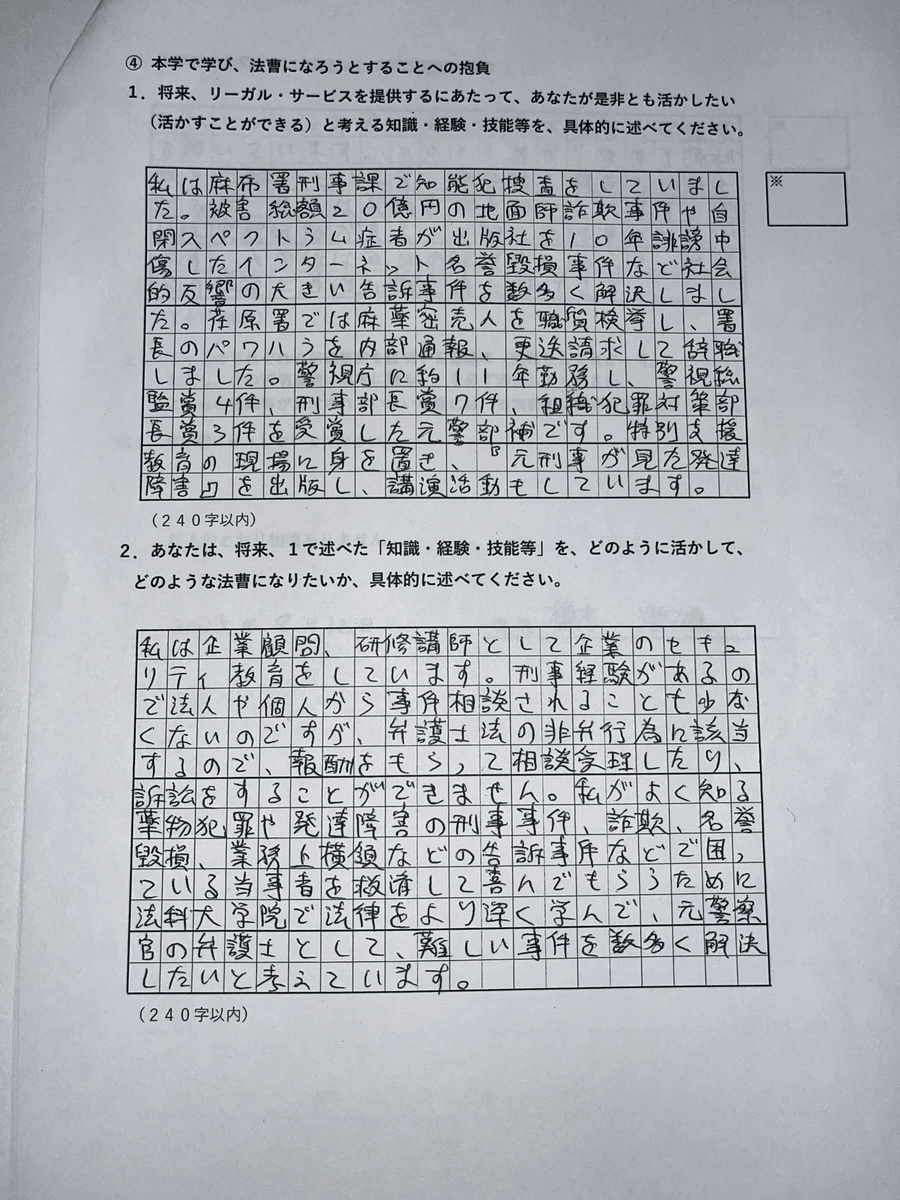 ④ 本学で学び、法曹になろうとすることへの抱負
1．将来、リーガル・サービスを提供するにあたって、あなたが是非とも活かしたい
（活かすことができる）と考える知識・経験・技能等を、具体的に述べてください。
※
私は麻布署刑事課で知能犯捜査をしていまし
た。被害総額20億円の地面師詐欺事件や自
閉スペクトラム症者が出版社を10年誹謗中
傷したインターネット名誉毀損事件など社会
的反響の大きい告訴事件を数多く解決しまし
た。荏原署では麻薬密売人を職質検挙し、署
長のパワハラを内部通報、更迭請求して辞職
しました。警視庁に約11年勤務し、警視総
監賞4件、刑事部長賞7件、組織犯罪対策部
長賞3件を受賞した元警部補です。特別支援
教育の現場に身を置き、『元刑事が見た発達
障害』を出版し、講演活動もしています。
（240字以内）
2．あなたは、将来、1で述べた「知識・経験・技能等」を、どのように活かして、
どのような法曹になりたいか、具体的に述べてください。
私は企業顧問、研修講師として企業のセキュ
リティ教育をしています。刑事経験があるの
で法人や個人から事件相談されることも少な
くないのですが、弁護士法の非弁行為に該当
するので、報酬をもらって相談受理したり、
訴訟をすることができません。私がよく知る
薬物犯罪や発達障害の刑事事件、詐欺、名誉
毀損、業務上横領などの告訴事件などで困っ
ている当事者を救済して喜んでもらうために
法科大学院で法律をより深く学んで、元警察
官の弁護士として、難しい事件を数多く解決
したいと考えています。
（240字以内）